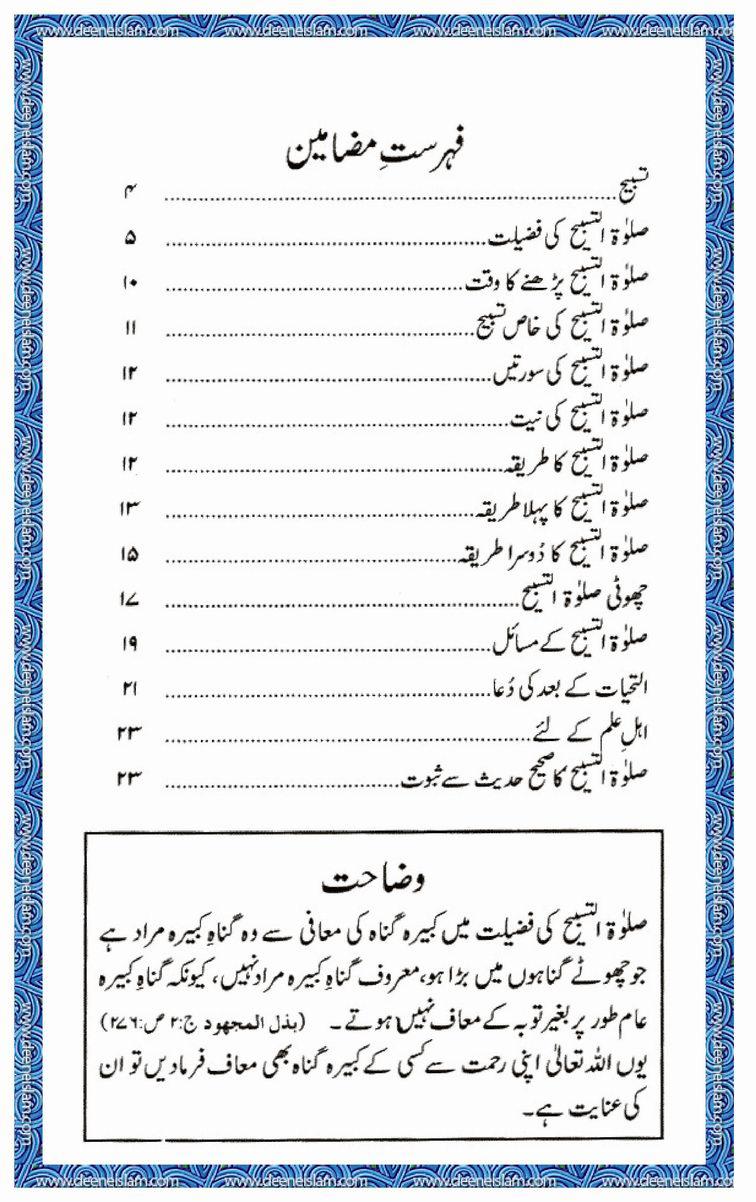 www.deeneislam.com www.deeneislam.com www.deeneislam.com www.deeneislam.com
فہرستِ مضامین
تسبیح ........ ۴
صلوٰۃ التسبیح کی فضیلت ........ ۵
صلوٰۃ التسبیح پڑھنے کا وقت ........ ۱۰
صلوٰۃ التسبیح کی خاص تسبیح ........ ۱۱
صلوٰۃ التسبیح کی سورتیں ........ ۱۲
صلوٰۃ التسبیح کی نیت ........ ۱۲
صلوٰۃ التسبیح کا طریقہ ........ ۱۲
صلوٰۃ التسبیح کا پہلا طریقہ ........ ۱۳
صلوٰۃ التسبیح کا دُوسرا طریقہ ........ ۱۵
چھوٹی صلوٰۃ التسبیح ........ ۱۷
صلوٰۃ التسبیح کے مسائل ........ ۱۹
التحیات کے بعد کی دُعا ........ ۲۱
اہلِ علم کے لئے ........ ۲۳
صلوٰۃ التسبیح کا صحیح حدیث سے ثبوت ........ ۲۳
وضاحت
صلوٰۃ التسبیح کی فضیلت میں کبیرہ گناہ کی معافی سے وہ گناہِ کبیرہ مراد ہے
جو چھوٹے گناہوں میں بڑا ہو، معروف گناہِ کبیرہ مراد نہیں، کیونکہ گناہِ کبیرہ
عام طور پر بغیر توبہ کے معاف نہیں ہوتے۔ (بذل المجھود ج:۲ ص:۲۷۶)
یوں اللہ تعالیٰ اپنی رحمت سے کسی کے کبیرہ گناہ بھی معاف فرمادیں تو ان
کی عنایت ہے۔
www.deeneislam.com www.deeneislam.com www.deeneislam.com www.deeneislam.com